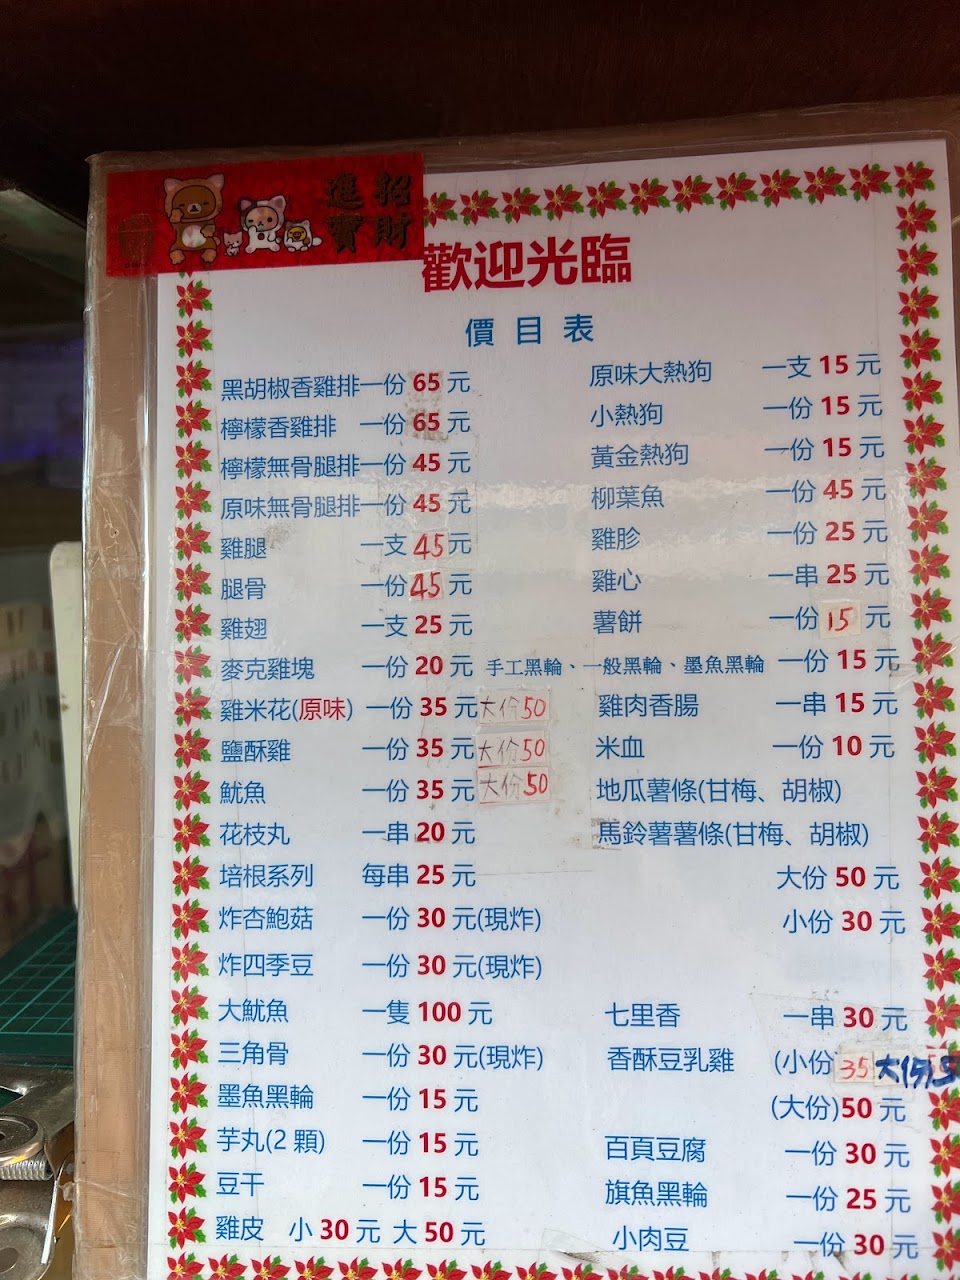 招財
進寶
歡迎光臨
價目表
黑胡椒香雞排一份 65 元
檸檬香雞排 一份 65 元
檸檬無骨腿排一份 45 元
原味無骨腿排一份 45 元
雞腿 一支 45 元
腿骨 一份 45 元
雞翅 一支 25 元
麥克雞塊 一份 20 元
雞米花(原味) 一份 35 元 大份50
鹽酥雞 一份 35 元 大份50
魷魚 一份 35 元 大份50
花枝丸 一串 20 元
培根系列 每串 25 元
炸杏鮑菇 一份 30 元(現炸)
炸四季豆 一份 30 元(現炸)
大魷魚 一隻 100 元
三角骨 一份 30 元(現炸)
墨魚黑輪 一份 15 元
芋丸(2 顆) 一份 15 元
豆干 一份 15 元
雞皮 小 30 元 大 50 元
原味大熱狗 一支 15 元
小熱狗 一份 15 元
黃金熱狗 一份 15 元
柳葉魚 一份 45 元
雞胗 一份 25 元
雞心 一串 25 元
薯餅 一份 15 元
手工黑輪、一般黑輪、墨魚黑輪 一份 15 元
雞肉香腸 一串 15 元
米血 一份 10 元
地瓜薯條(甘梅、胡椒)
馬鈴薯薯條(甘梅、胡椒)
大份 50 元
小份 30 元
七里香 一串 30 元
香酥豆乳雞 (小份 35 大份
(大份)50 元
百頁豆腐 一份 30 元
旗魚黑輪 一份 25 元
小肉豆 一份 30 元